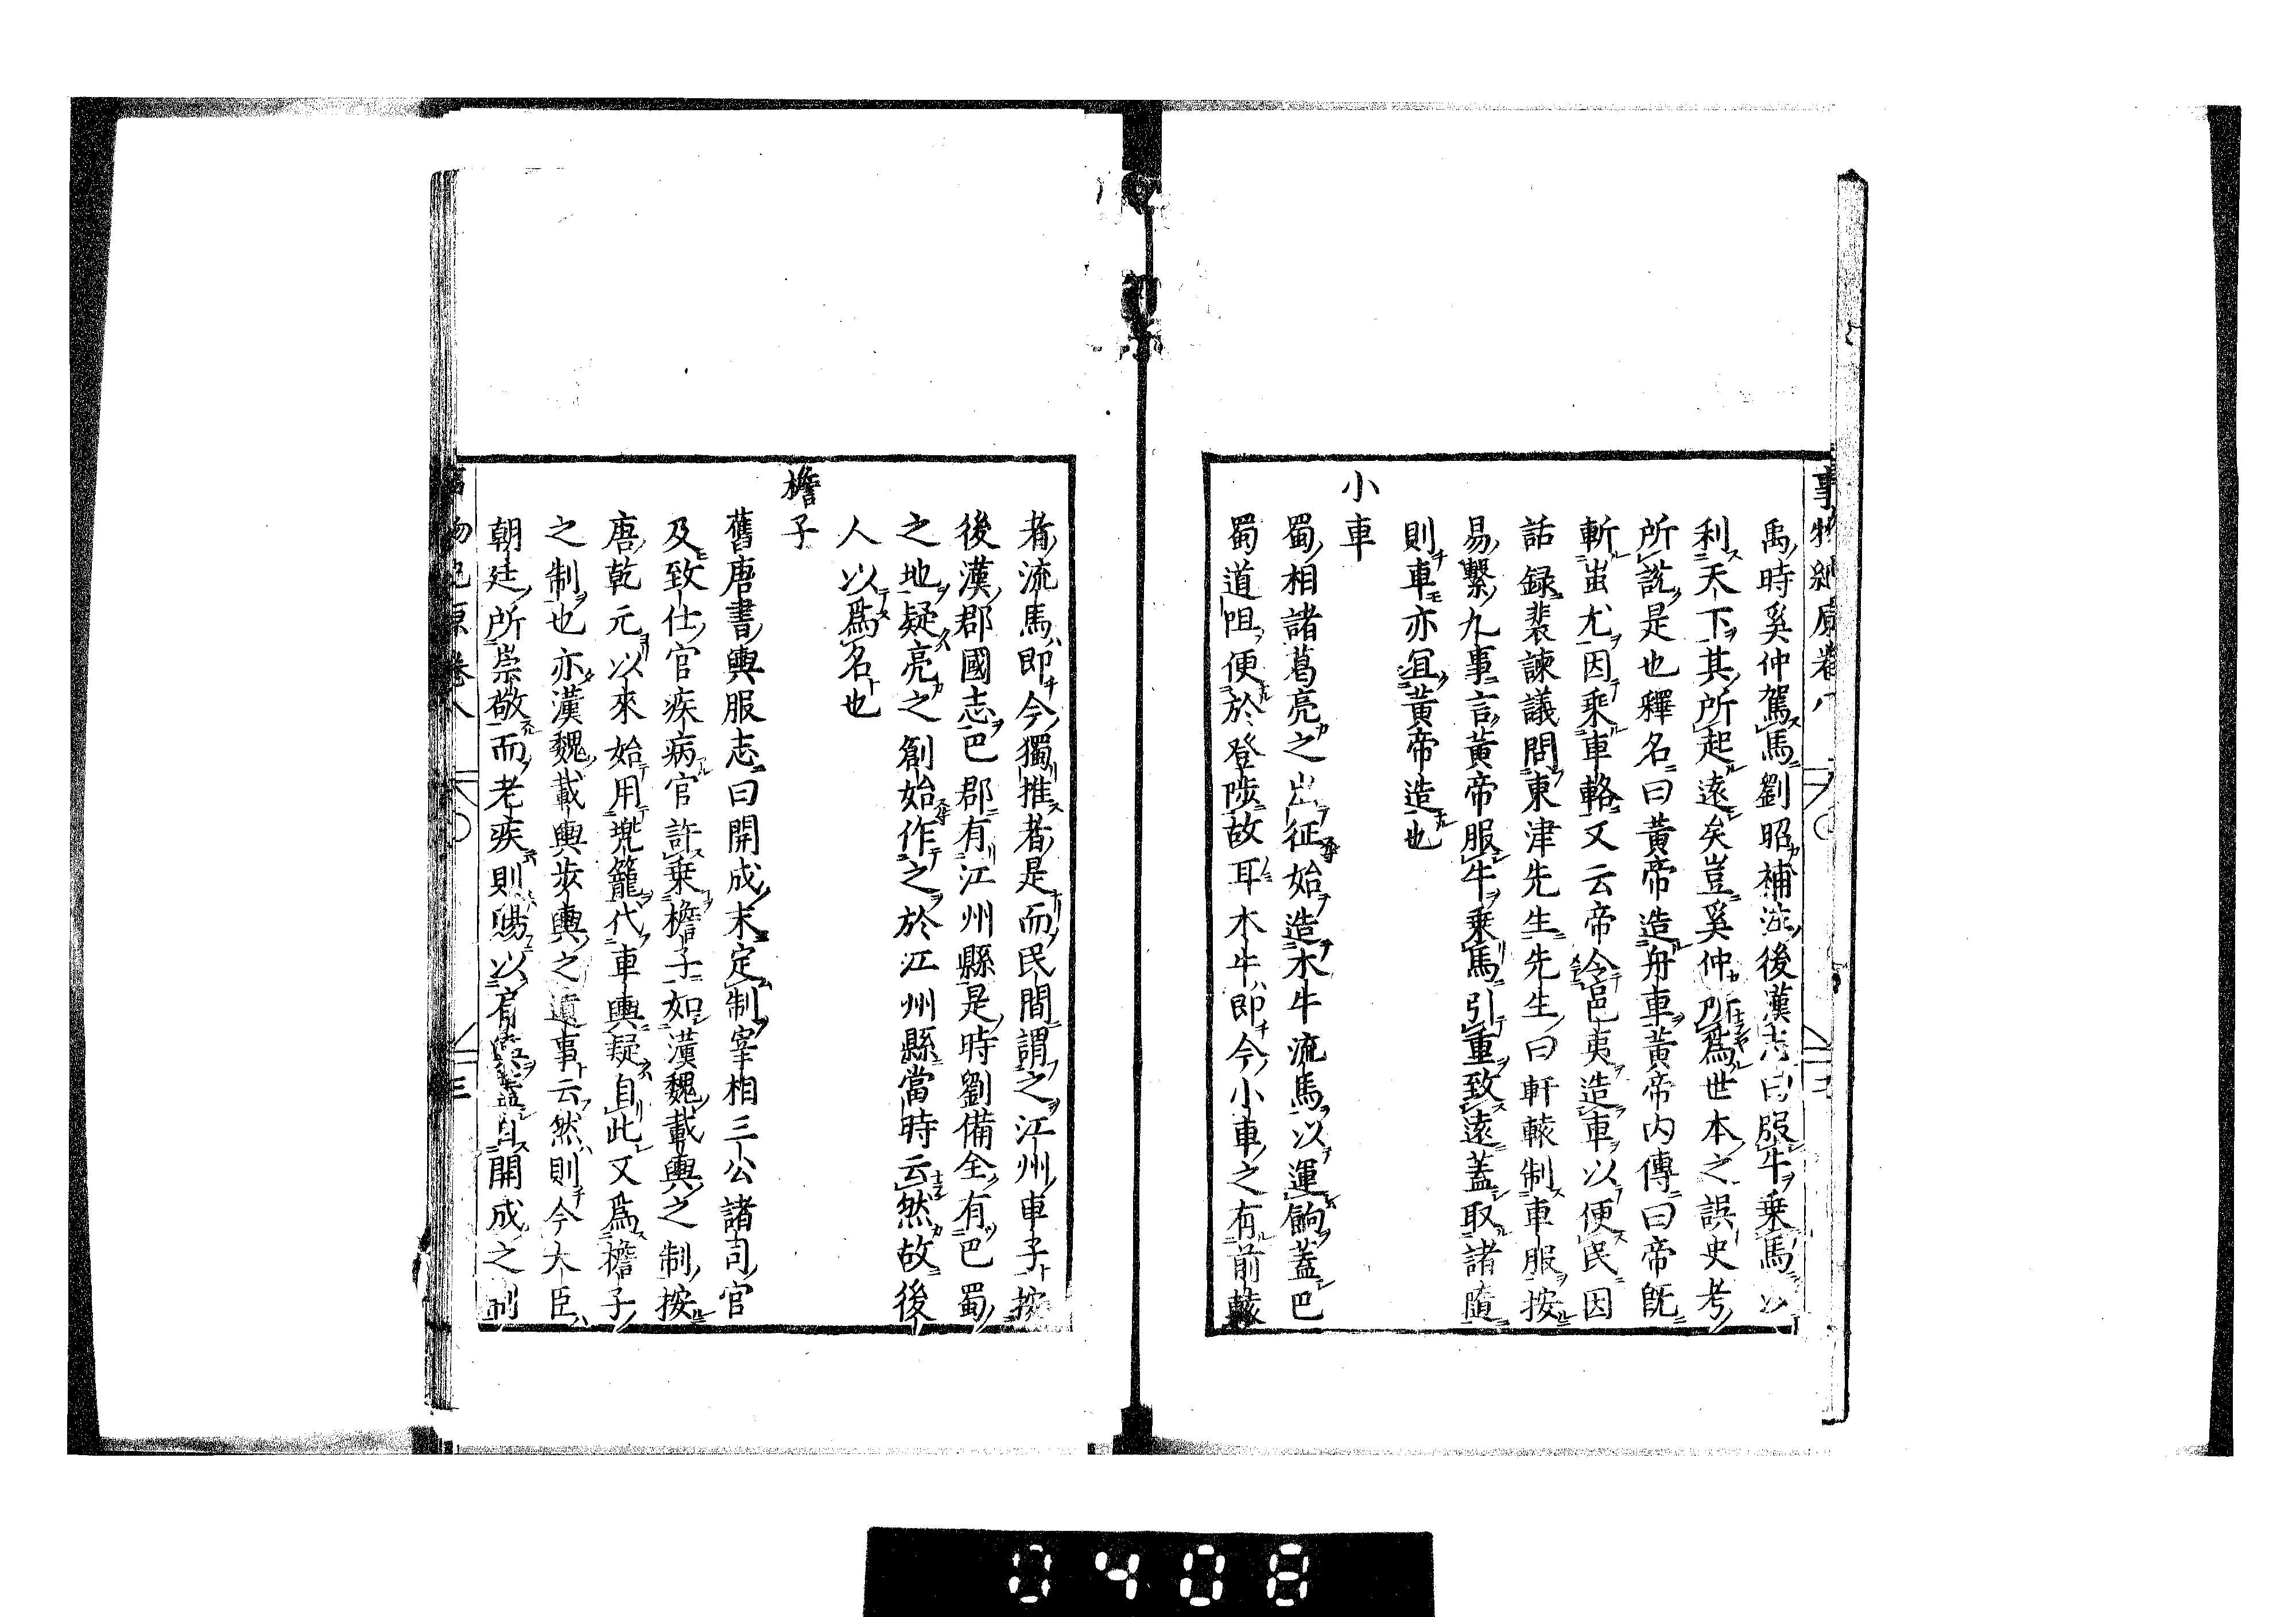 事物紀原卷八
禹時奚仲駕馬劉昭補注後漢志曰服牛乗馬以
利天下其所起遠矣豈奚仲所爲世本之誤史考
所説是也釋名曰黃帝造舟車黃帝内傳曰帝既
斬蚩尤因乗車輅又云帝令邑夷造車以便民因
話録裴諫議問東津先生先生曰軒轅制車服按
易繫九事言黃帝服牛乗馬引重致遠蓋取諸隨
則車亦冝黃帝造也
小車
蜀相諸葛亮之出征始造木牛流馬以運餉蓋巴
蜀道阻便於登陟故耳木牛即今小車之有前轅
者流馬即今獨推者是而民間謂之江州車子按
後漢郡國志巴郡有江州縣是時劉備全有巴蜀
之地疑亮之創始作之於江州縣當時云然故後
人以爲名也
檐子
舊唐書輿服志曰開成末定制宰相三公諸司官
及致仕官疾病官許乗檐子如漢魏載輿之制按
唐乾元以來始用兠籠代車輿疑自此又爲檐子
之制也亦漢魏載輿步輿之遺事云然則今大臣
朝廷所崇敬而老疾則賜以肩輿蓋自開成之制
事物紀原卷八
三
0408